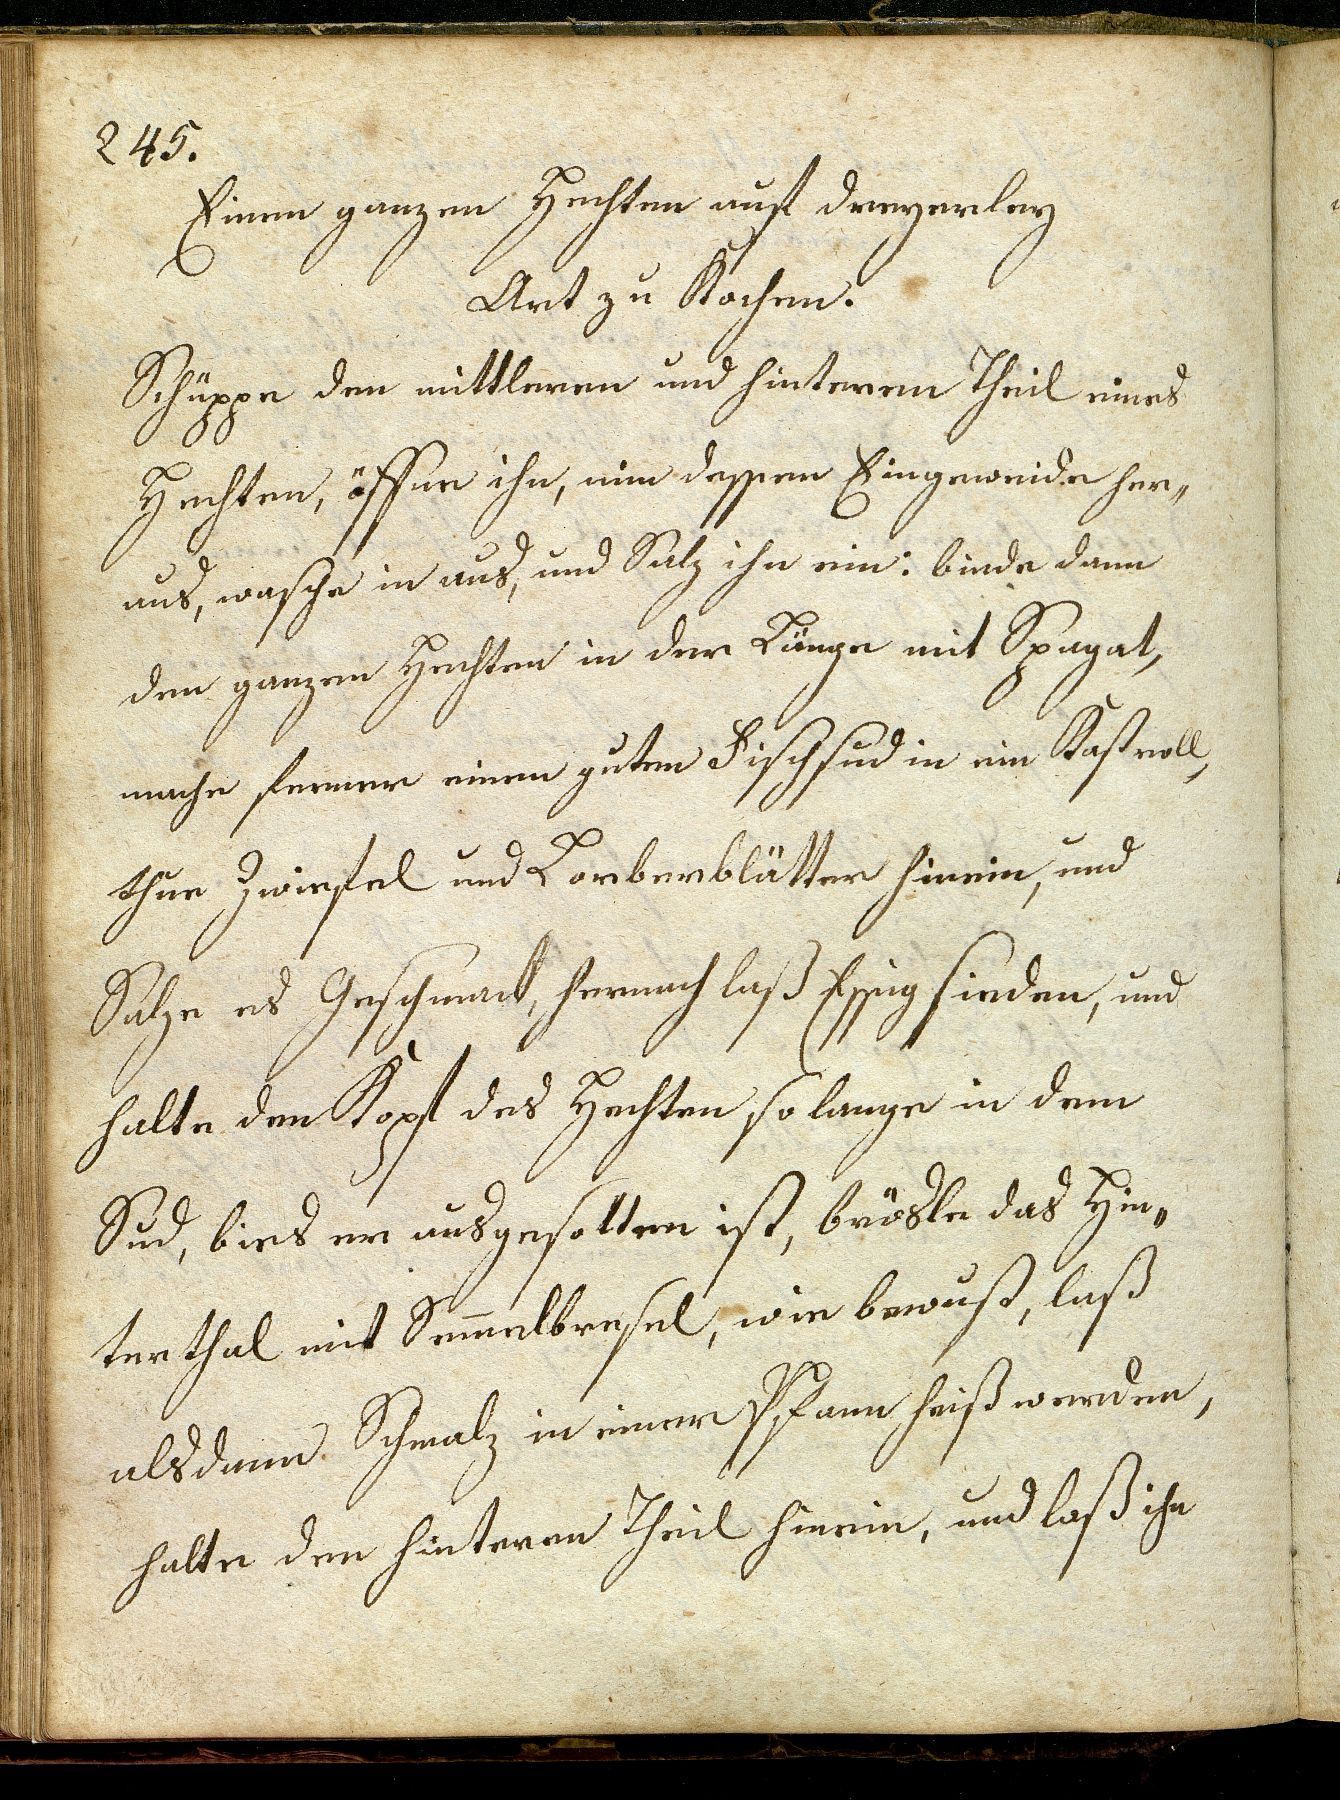 245.
Einen ganzen Hechten auf dreyerley
Art zu Kochen.
Schüppe den mittleren und hinteren Theil eines
Hechten, öffne ihn, nim dessen Eingeweide her„
aus, wasche in aus, und Salz ihn ein: binde dann
den ganzen Hechten in der Länge mit Spagat,
mache ferner einen guten Fischsud in ein Kastroll,
thue Zwiefel und Lorberblätter hinein, und
Salze es Geschmack, hernach laß Essig sieden, und
halte den Kopf des Hechten so lange in dem
Sud, bies er ausgesotten ist, brösle das Hin„
terthal mit Sem̄elbresel, wie bewust, laß
alsdann Schmalz in einer Pfann heiß werden,
halte den hinteren Theil hinein, und laß ihn